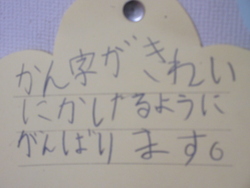 かん字がきれい
にかけるように
がんばります。